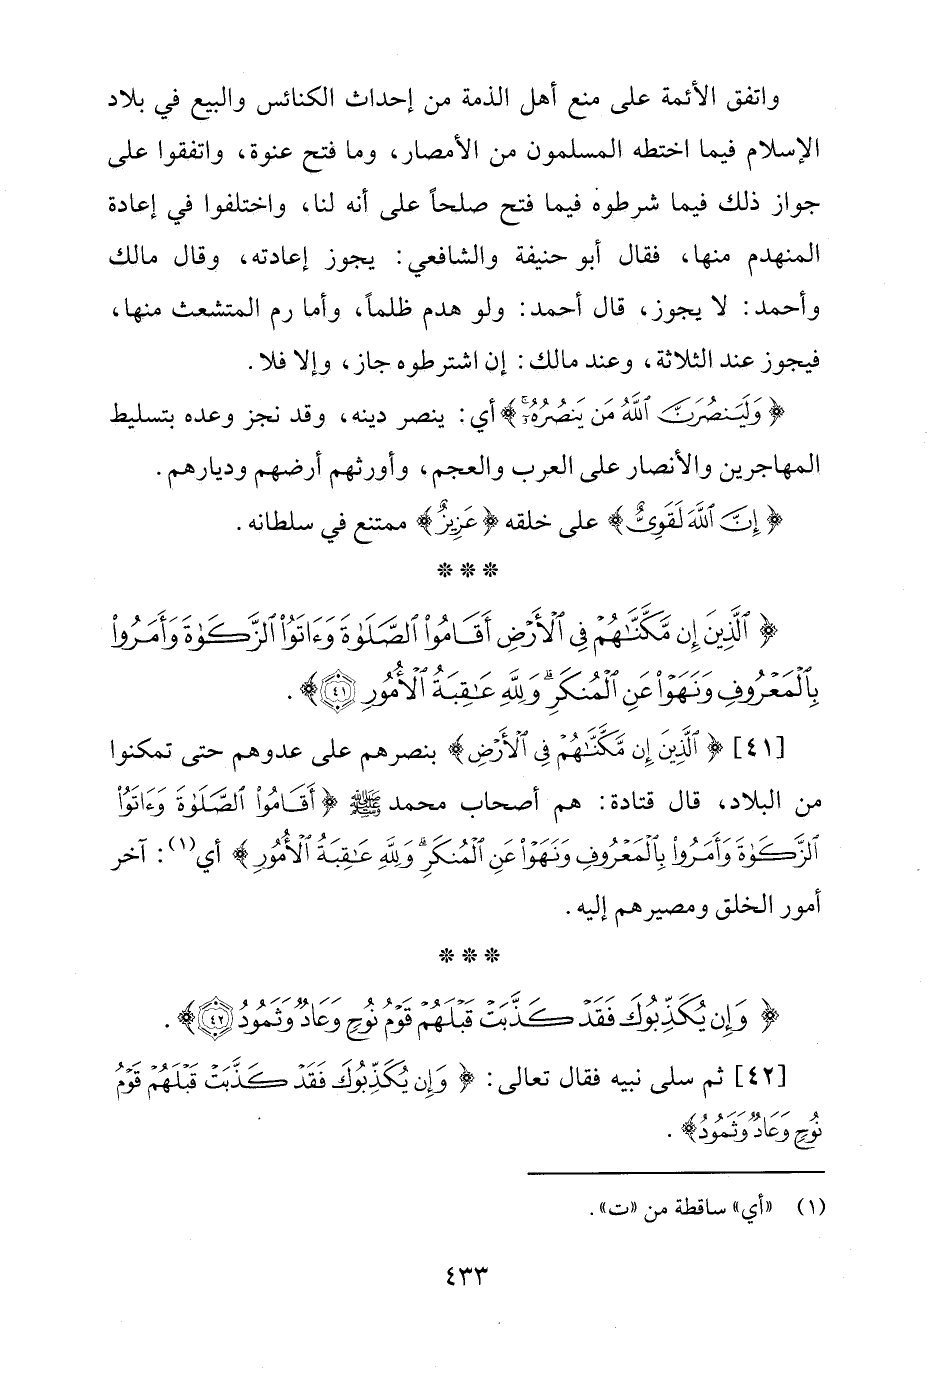 واتفق الأئمة على منع أهل الذمة من إحداث الكنائس والبيع في بلاد
الإسلام فيما اختطه المسلمون من الأمصار، وما فتح عنوة، واتفقوا على
جواز ذلك فيما شرطوه فيما فتح صلحاً على أنه لنا، واختلفوا في إعادة
المنهدم منها، فقال أبو حنيفة والشافعي: يجوز إعادته، وقال مالك
وأحمد: لا يجوز، قال أحمد: ولو هدم ظلماً، وأما رم المتشعث منها،
فيجوز عند الثلاثة، وعند مالك: إن اشترطوه جاز، وإلا فلا.
﴿وَلَيَنصُرَنَّ ٱللَّهُ مَن يَنصُرُهُۥٓۚ﴾ أي: ينصر دينه، وقد نجز وعده بتسليط
المهاجرين والأنصار على العرب والعجم، وأورثهم أرضهم وديارهم.
﴿إِنَّ ٱللَّهَ لَقَوِىٌّ﴾ على خلقه ﴿عَزِيزٌ﴾ ممتنع في سلطانه.
* * *
﴿ٱلَّذِينَ إِن مَّكَّنَّٰهُمۡ فِى ٱلۡأَرۡضِ أَقَامُوا۟ ٱلصَّلَوٰةَ وَءَاتَوُا۟ ٱلزَّكَوٰةَ وَأَمَرُوا۟
بِٱلۡمَعۡرُوفِ وَنَهَوۡا۟ عَنِ ٱلۡمُنكَرِۗ وَلِلَّهِ عَٰقِبَةُ ٱلۡأُمُورِ ٤١﴾.
[٤١] ﴿ٱلَّذِينَ إِن مَّكَّنَّٰهُمۡ فِى ٱلۡأَرۡضِ﴾ بنصرهم على عدوهم حتى تمكنوا
من البلاد، قال قتادة: هم أصحاب محمد ﷺ ﴿أَقَامُوا۟ ٱلصَّلَوٰةَ وَءَاتَوُا۟
ٱلزَّكَوٰةَ وَأَمَرُوا۟ بِٱلۡمَعۡرُوفِ وَنَهَوۡا۟ عَنِ ٱلۡمُنكَرِۗ وَلِلَّهِ عَٰقِبَةُ ٱلۡأُمُورِ﴾ أي(١): آخر
أمور الخلق ومصيرهم إليه.
* * *
﴿وَإِن يُكَذِّبُوكَ فَقَدۡ كَذَّبَتۡ قَبۡلَهُمۡ قَوۡمُ نُوحٍ وَعَادٌ وَثَمُودُ ٤٢﴾.
[٤٢] ثم سلى نبيه فقال تعالى: ﴿وَإِن يُكَذِّبُوكَ فَقَدۡ كَذَّبَتۡ قَبۡلَهُمۡ قَوۡمُ
نُوحٍ وَعَادٌ وَثَمُودُ﴾.
(١) «أي» ساقطة من «ت».
٤٣٣